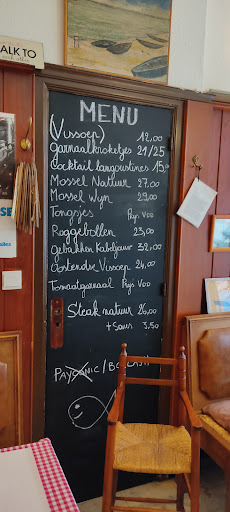 ALK TO
MENU
(Vissoep) 12,00
Garnaalkroketjes 21/25
Cocktail langoustines 15,00
Mossel Natuur 27,00
Mossel Wyn 29,00
Tongsjes Prys Voo
Roggebollen 23,00
Gebakken Kabeljauw 32,00
Oostendse Vissoep 24,00
Tomaatgarnaal Prys Voo
Steak natuur 26,00
+ Saus 3.50
PAYCONIC / B CASH